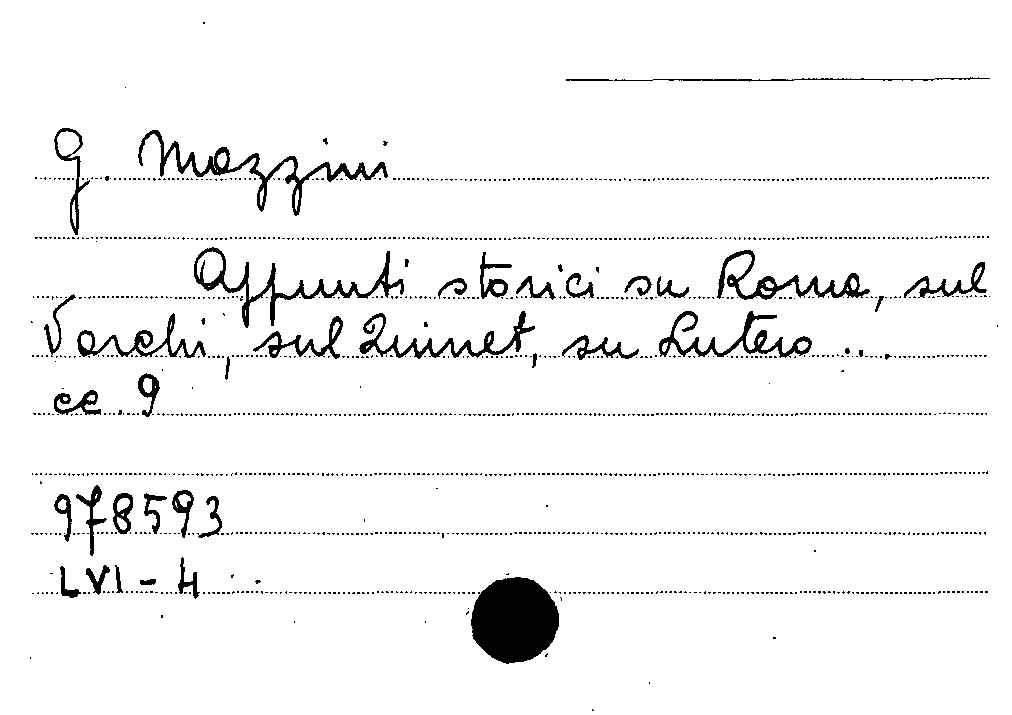 G. Mazzini
Appunti storici su Roma, sul
Varchi, sul Quinet, su Lutero ...
cc. 9
978593
LVI - 4